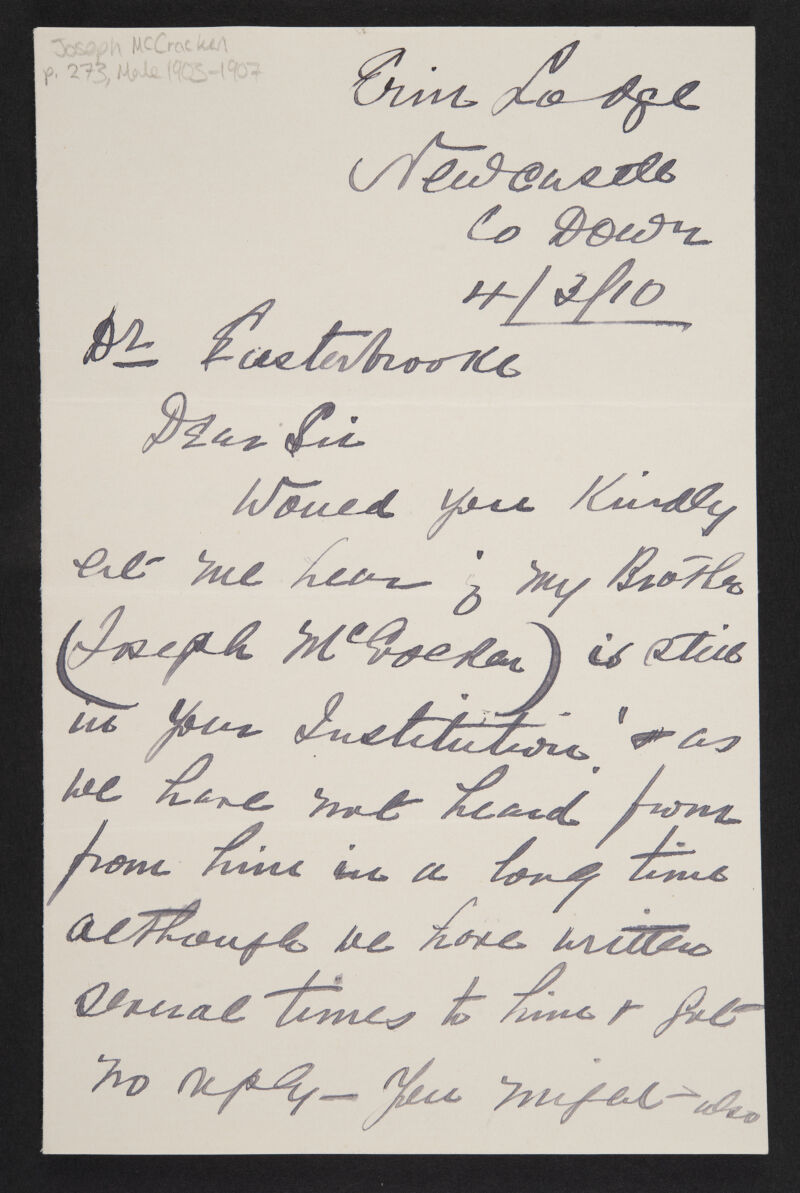 Joseph McCracken
p. 273, Male 1903-1907
Erin Lodge
Newcastle
Co Down
4/3/10
Dr Easterbrooke
Dear Sir
Would you Kindly
let me hear if my Brother
(Joseph McCrocken) is still
in your Institution as
we have not heard from
from him in a long time
although we have written
several times to him & got
no reply – You might also